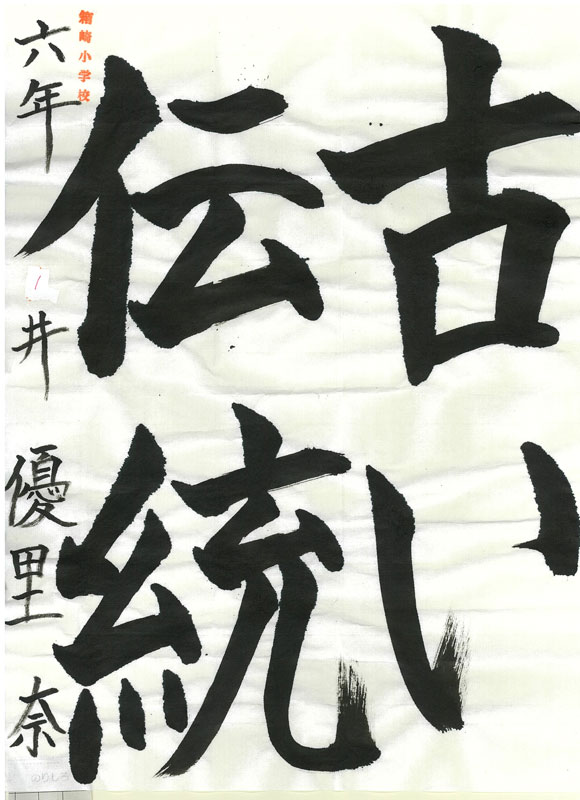 古い
伝統
箱崎小学校
六年 井 優里奈
1
のりしろ